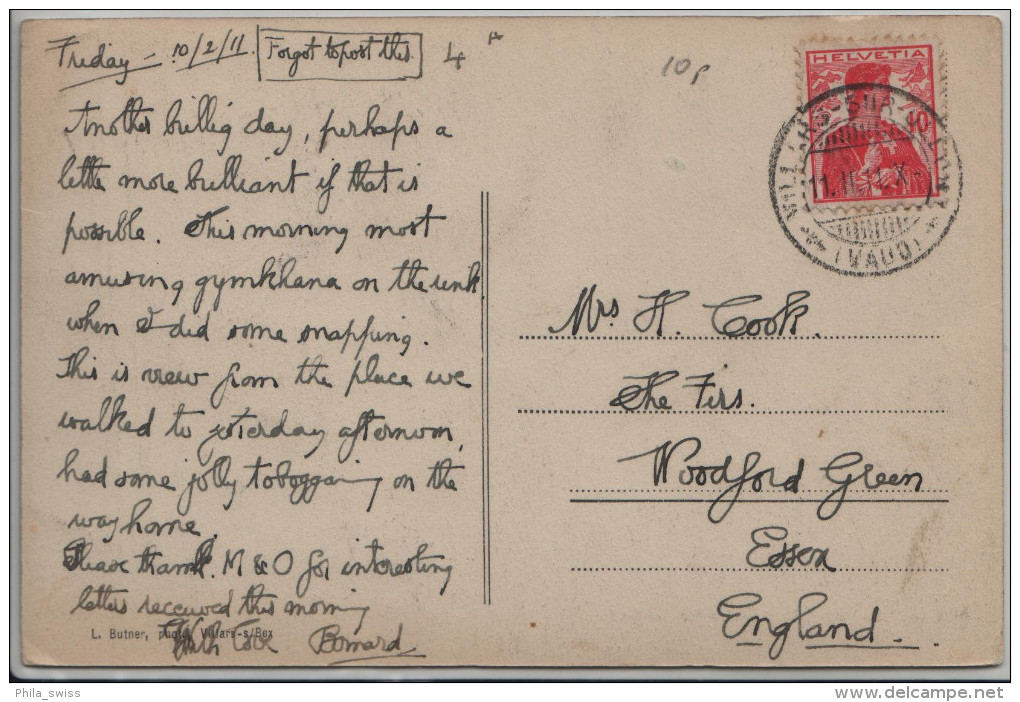 Friday - 10/2/11 Forgot to post this. 4
10p
HELVETIA
10
VILLARS-SUR-OLLON
11.II.11.X-
(VAUD)
Another brillig day, perhaps a
little more brilliant if that is
possible. This morning most
amusing gymkhana on the rink
when I did some snapping.
This is view from the place we
walked to yesterday afternoon,
had some jolly tobogganing on the
way home.
Please thank. M & O for interesting
letters received this morning
L. Butner, phot., Villars-s/Bex
With Love
Mrs H. Cook.
The Firs.
Woodford Green
Essex
England.
Phila_swiss
delcampe.net